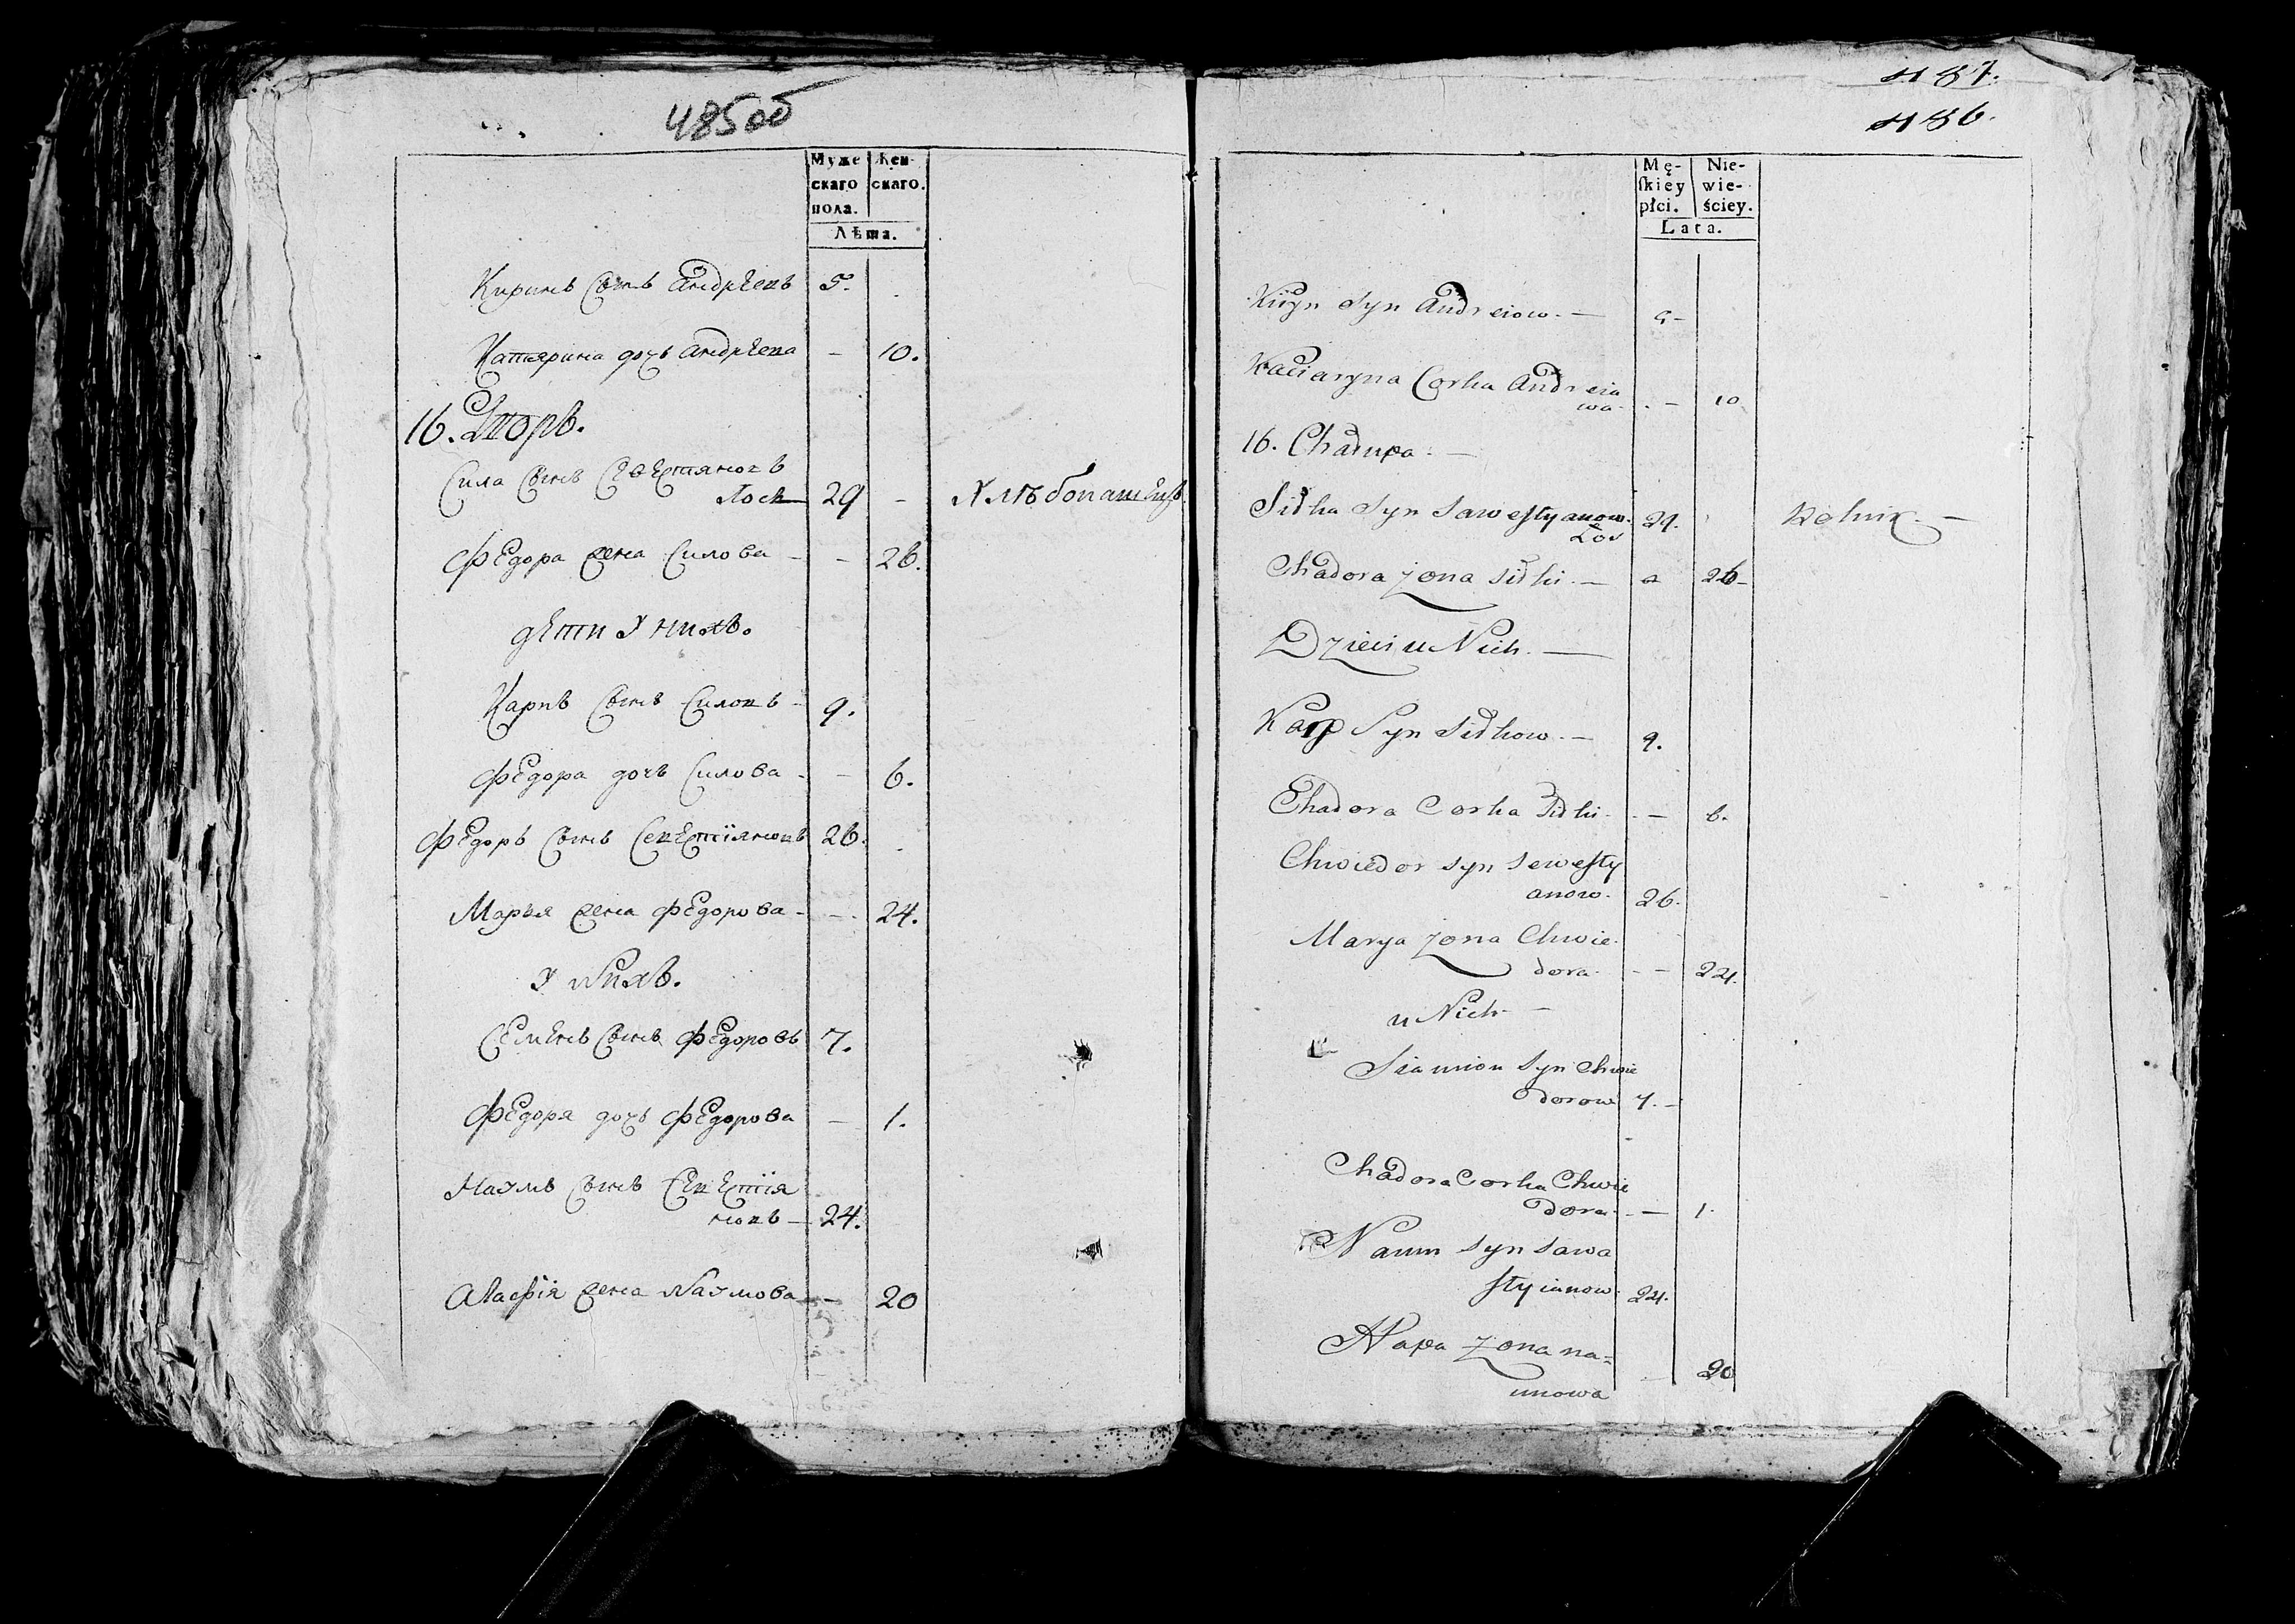 485об
Муже
скаго
пола.
Жен-
скаго.
Лѣта.
Киринъ Сынъ Андрѣевъ 5.
Катярина дочь Андрѣева - 10.
16. Дворъ.
Сила Сынъ Севестяновъ
Лось 29 - Хлѣбопашецъ.
Федора жена Силова - - 26.
дети У нихъ.
Карпъ Сынъ Силовъ - 9.
Федора дочь Силова - - 6.
Федоръ Сынъ Севестіяновъ 26.
Марья жена Федорова - - 24.
У Нихъ.
Семенъ Сынъ Федоровъ 7.
Федоря дочь Федорова - 1.
Наумъ Сынъ Севестія
новъ - 24.
Агафія жена Наумова - 20
487.
486.
Mę-
ſkiey
płci.
Nie-
wie-
ściey.
Lata.
Kiryn Syn Andreiow. —
Kaciaryna Corka Andreia
wa. - — 10
16. Chałupa. —
Sidka Syn Sawestyanow.
Łos 29. Rolnik. —
Chadora żona Sidki. — 26-
Dzieci u Nich. —
Karp Syn Sidkow. — 9.
Chadora Corka Sidki. - — 6.
Chwiedor Syn Sewesty
anow. 26.
Marya żona Chwie-
dora. - — 24.
u Nich —
Siamion Syn Chwie
dorow 7. -
Chadora Corka Chwie
dora. - — 1.
Naum Syn Sawa
styianow. 24.
żona na=
umowa 20